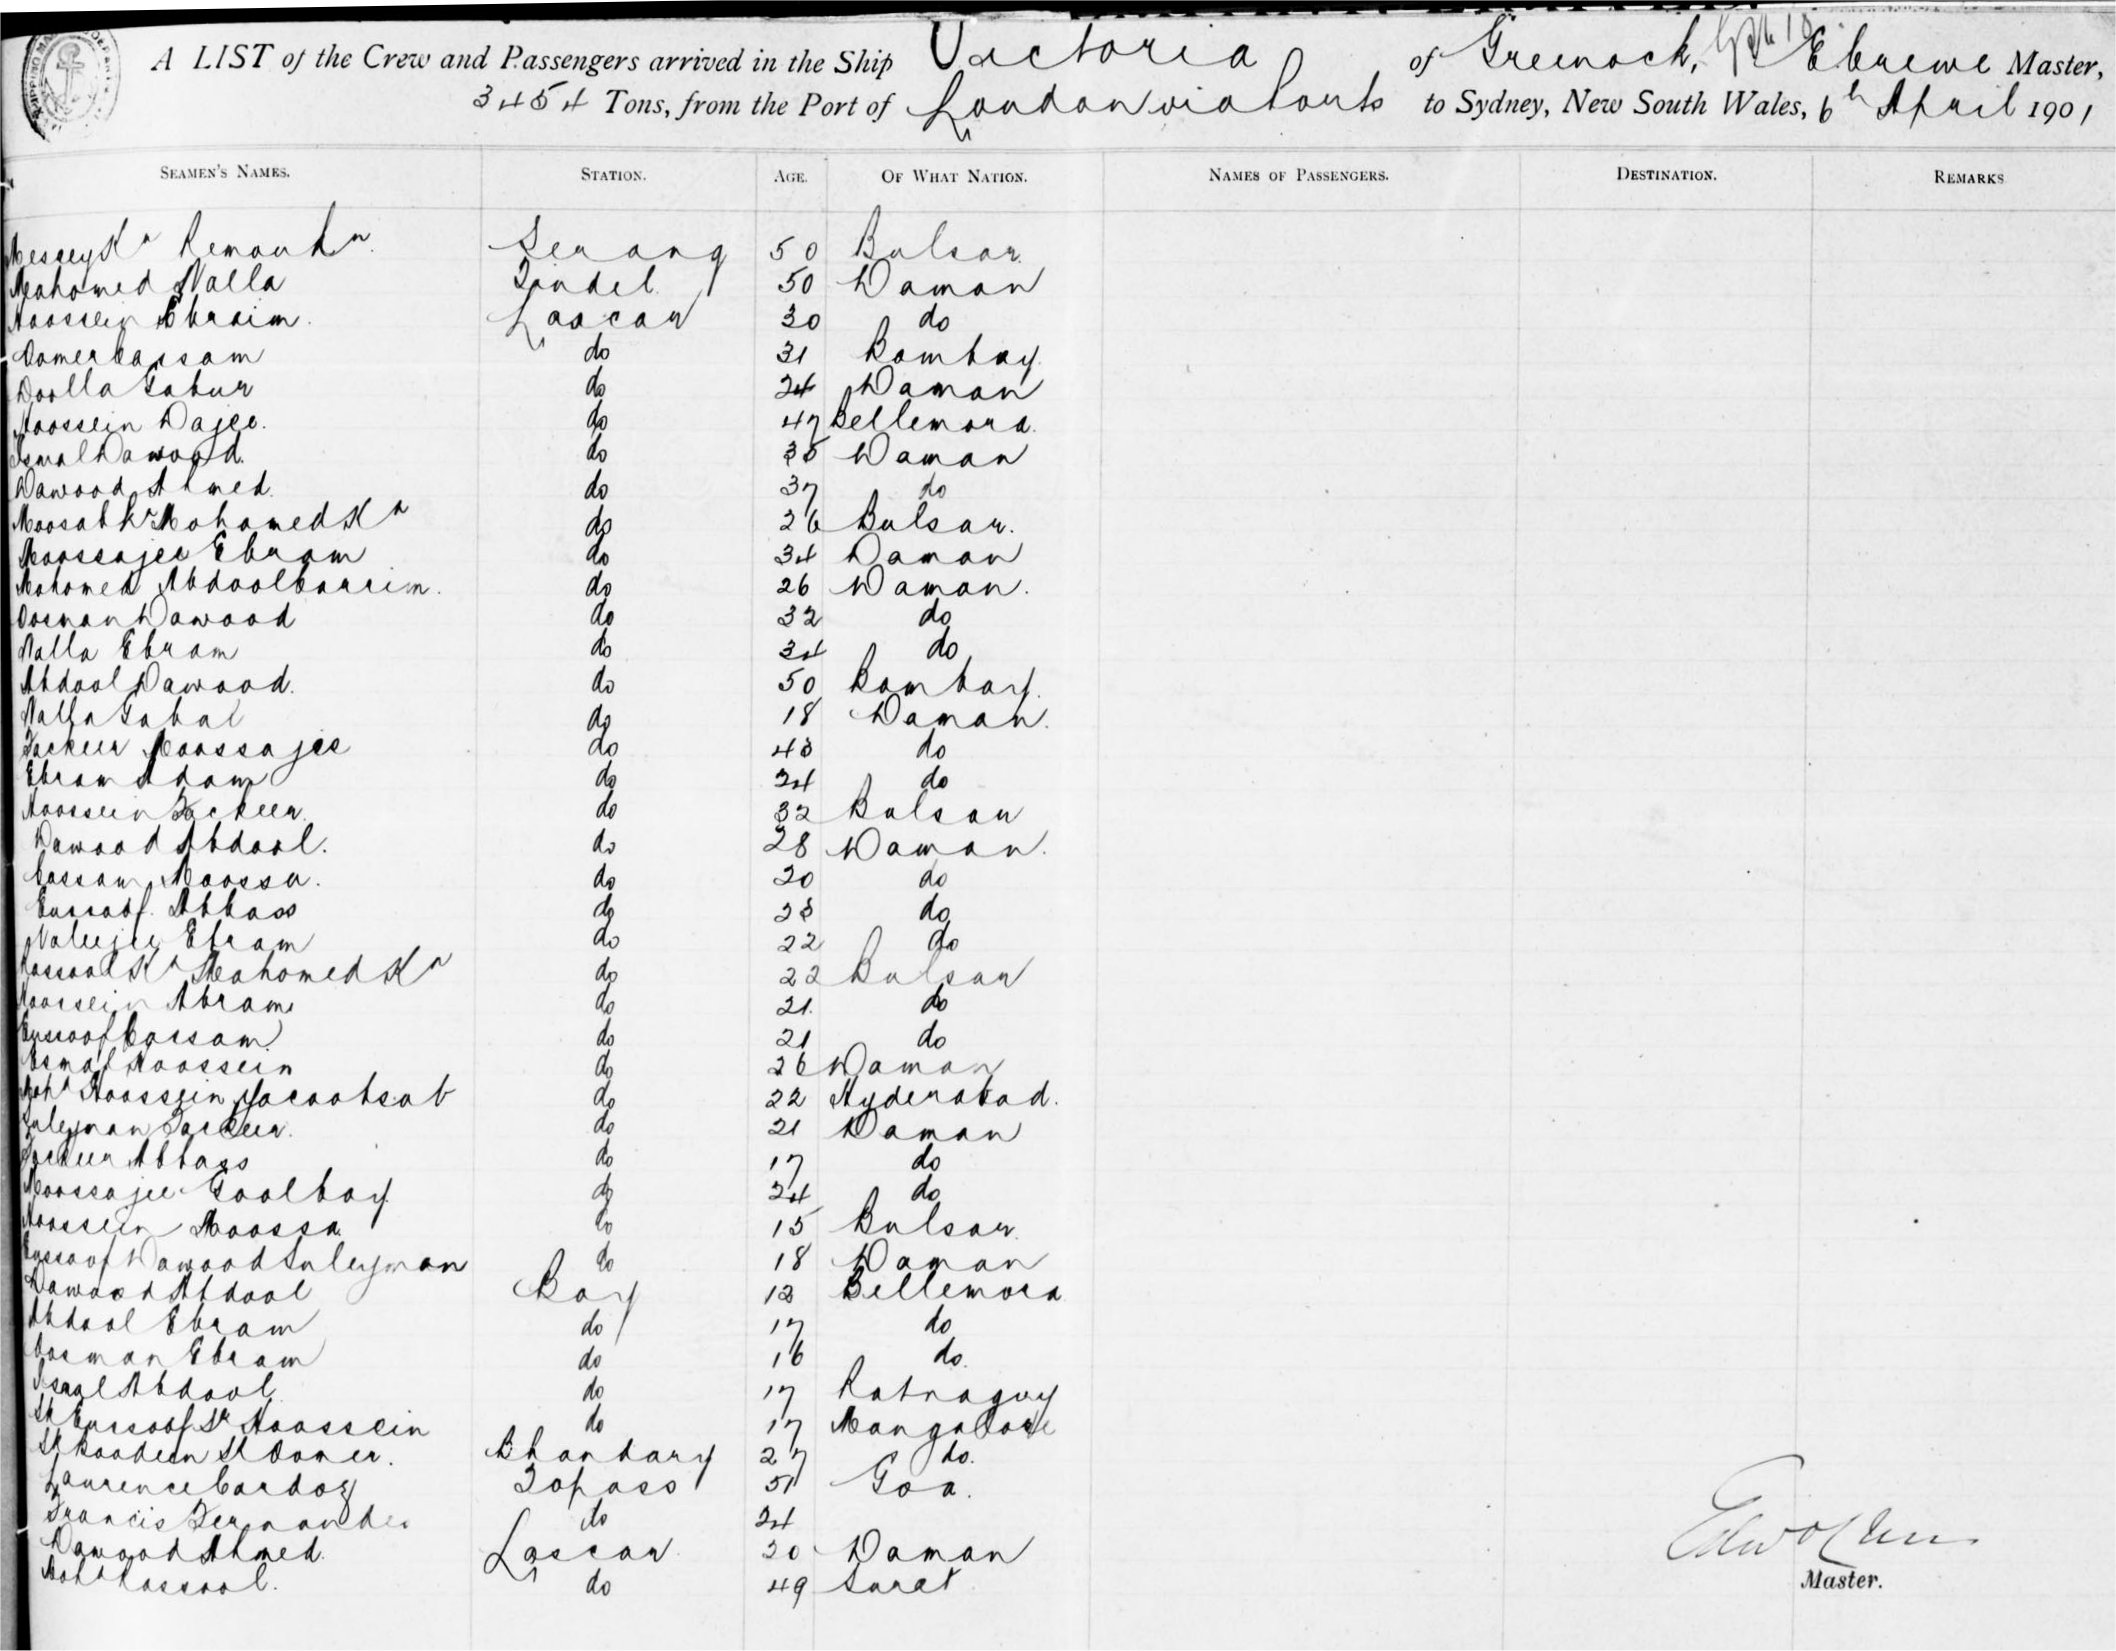 A LIST of the Crew and Passengers arrived in the Ship Victoria of Greenock, Master,
3454 Tons, from the Port of London via Ports to Sydney, New South Wales, 6th April 1901
SEAMEN'S NAMES. STATION. AGE. OF WHAT NATION. NAMES OF PASSENGERS. DESTINATION. REMARKS
Serang 50 Bulsar.
Mahomed Valla Tindel 50 Daman
Hoossein Ebraim. Lascar 30 do
Oomer Cassam do 31 Bombay.
Doolla Gabur do 24 Daman
Hoossein Dajee. do 47 Bellemora.
Ismal Dawood. do 35 Daman
Dawood Ahmed. do 37 do
Moosabhn Mahomed Kn do 26 Bulsar.
Moossajee Ebram do 34 Daman
Mahomed Abdoolcarrim. do 26 Daman.
Oosman Dawood do 32 do
Valla Ebram do 34 do
Abdool Dawood. do 50 Bombay.
Valla Gabal do 18 Daman.
Fackeer Moossajee do 43 do
Ebram Adam do 24 do
Hoossein Fackeer. do 32 Bulsar
Dawood Abdool. do 28 Daman.
Cassam Moossa. do 20 do
Eussoof. Abbass do 23 do
Valeejee Ebram do 22 do
Rassool Kn Mahomed Kn do 22 Bulsar
Hoossein Abram do 21. do
Eussoof Cassam do 21 do
Esmal Hoossein do 26 Daman
Mohd Hoossein Yacoobsab do 22 Hyderabad.
Suleyman Fackeer. do 21 Daman
Fackeer Abbass do 17 do
Moossajee Goolbay. do 24 do
Hoossein Moossa. do 15 Bulsar.
Eussoof Dawood Suleyman do 18 Daman
Dawood Abdool Boy 12 Bellemora
Abdool Ebram do 17 do
Oosman Ebram do 16 do.
Ismal Abdool. do 17 Ratnagury
Sk Eussoof Sk Hoossein do 17 Mangalore
Sk Oomer. Bhandary 27 do.
Laurence Cardoz Topass 51 Goa.
Francis Fernandes do 24
Dawood Ahmed. Lascar 20 Daman
Mohd Rassool. do 49 Surat
Master.